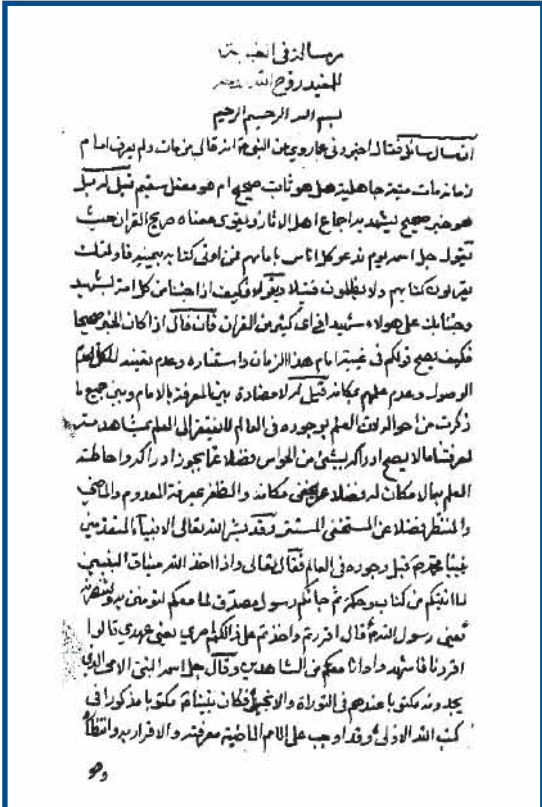 رسالة في الغيبة
للمفيد روح الله
بسم الله الرحمن الرحيم
ان سال سائل فقال اخبروني عما روي عن النبي انه قال من مات ولم يعرف امام
زمانه مات ميتة جاهلية هل هو ثابت صحيح ام هو معتل سقيم قيل له بل
هو خبر صحيح يشهد به اجماع اهل الاثار ويقوى معناه صريح القران حيث
يقول جل اسمه يوم ندعو كل اناس بامامهم فمن اوتي كتابه بيمينه فاولئك
يقراون كتابهم ولا يظلمون فتيلا ويقول فكيف اذا جئنا من كل امة بشهيد
وجئنا بك على هولاء شهيدا في اي كثير من القران فان قال اذا كان الخبر صحيحا
فكيف يصح قولكم في غيبة امام هذا الزمان واستتاره وعدم
الوصول وعدم علمهم بمكانه قيل له لا مضادة بين المعرفة بالامام وبين جميع ما
ذكرت من احواله لان العلم بوجوده في العالم لا يفتقر الى العلم بمشاهدته
لمعرفتنا ما لا يصح ادراكه بشئ من الحواس فضلا عما يجوز ادراكه واحاطة
العلم بما لا مكان له فضلا عمن يخفى مكانه والظفر بمعرفة المعدوم والماضي
والمنتظر فضلا عن المستخفي المستتر وقد بشر الله تعالى الانبياء المتقدمين
بنبينا محمد قبل وجوده في العالم فقال تعالى واذا اخذ الله ميثاق النبيين
لما اتيتكم من كتاب وحكمة ثم جائكم رسول مصدق لما معكم لتومنن به ولتنصرنه
يعني رسول الله قال اقررتم واخذتم على ذالكم اصري يعني عهدي قالوا
اقررنا فاشهدوا وانا معكم من الشاهدين وقال جل اسمه النبي الامي الذي
يجدونه مكتوبا عندهم في التوراة والانجيل فكان نبينا مكتوبا مذكورا في
كتب الله الاولى وقد اوجب على الامم الماضية معرفته والاقرار به وانتظاره
وهو